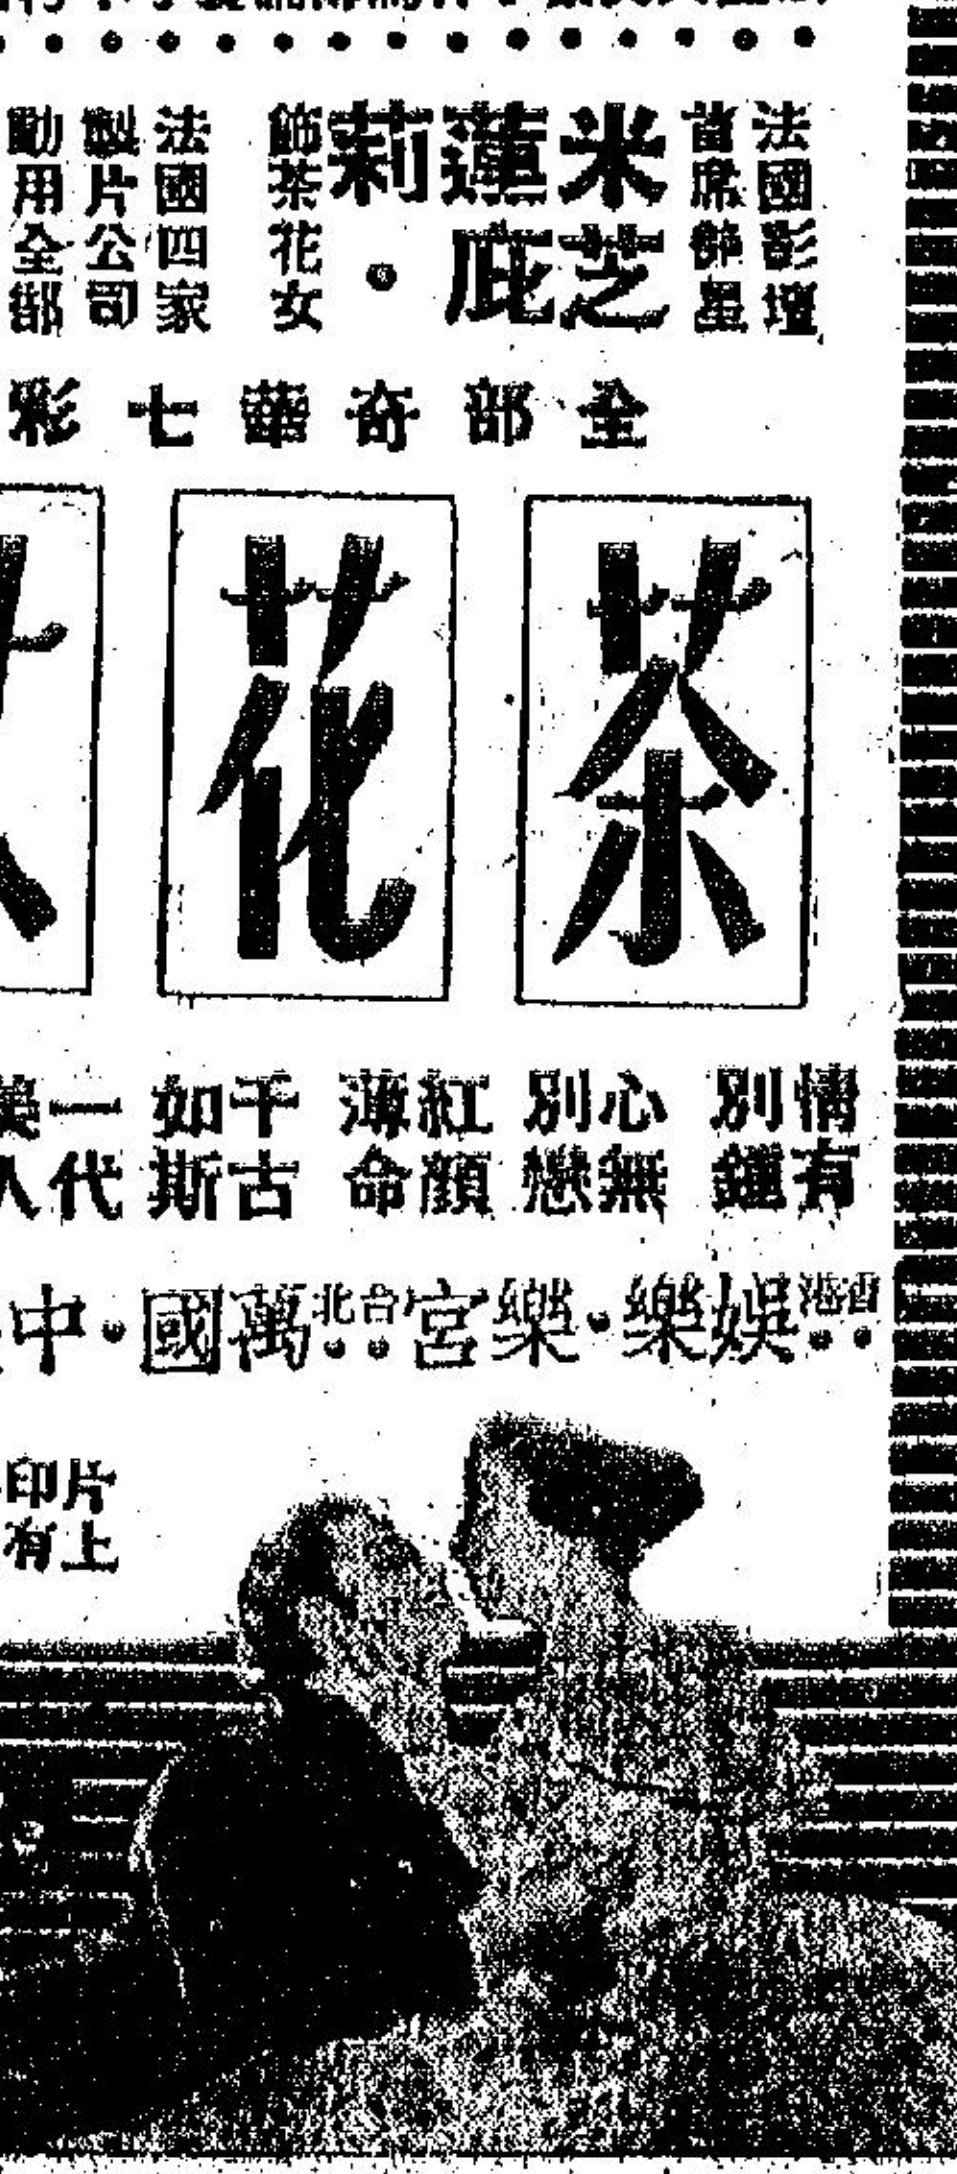 法國影壇
首席艷星
米芝
蓮庇
莉・
飾茶花女
法國四家
製片公司
動用全部
全部奇華七彩
茶花
情有別鍾
心無別戀
紅顏薄命
千古如斯
一代美人
香港：娛樂・樂宮 台北：萬國・中
片上
印有